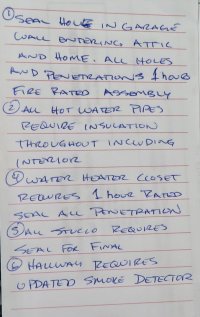 ① SEAL HOLE IN GARAGE
WALL ENTERING ATTIC
AND HOME. ALL HOLES
AND PENETRATIONS 1 hour
FIRE RATED ASSEMBLY
② ALL HOT WATER PIPES
REQUIRE INSULATION
THROUGHOUT INCLUDING
INTERIOR
④ WATER HEATER CLOSET
REQUIRES 1 hour RATED
SEAL ALL PENETRATION
⑤ ALL STUCCO REQUIRES
SEAL FOR FINAL
⑥ HALLWAY REQUIRES
UPDATED SMOKE DETECTOR